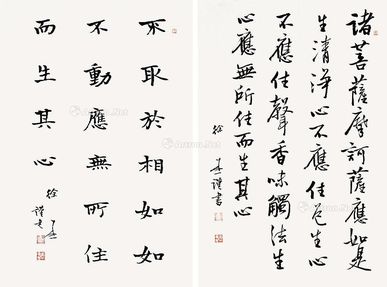 諸菩薩摩訶薩應如是
生清淨心不應住色生心
不應住聲香味觸法生
心應無所住而生其心
徐謹書
不取於相如如
不動應無所住
而生其心
徐謹書
Artron.Net
Artron.Net